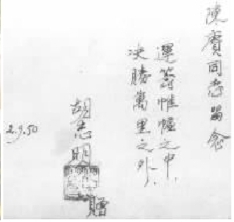 陳賡同志留念
運籌帷幄之中，
决勝萬里之外，
胡志明
贈
2.9.50